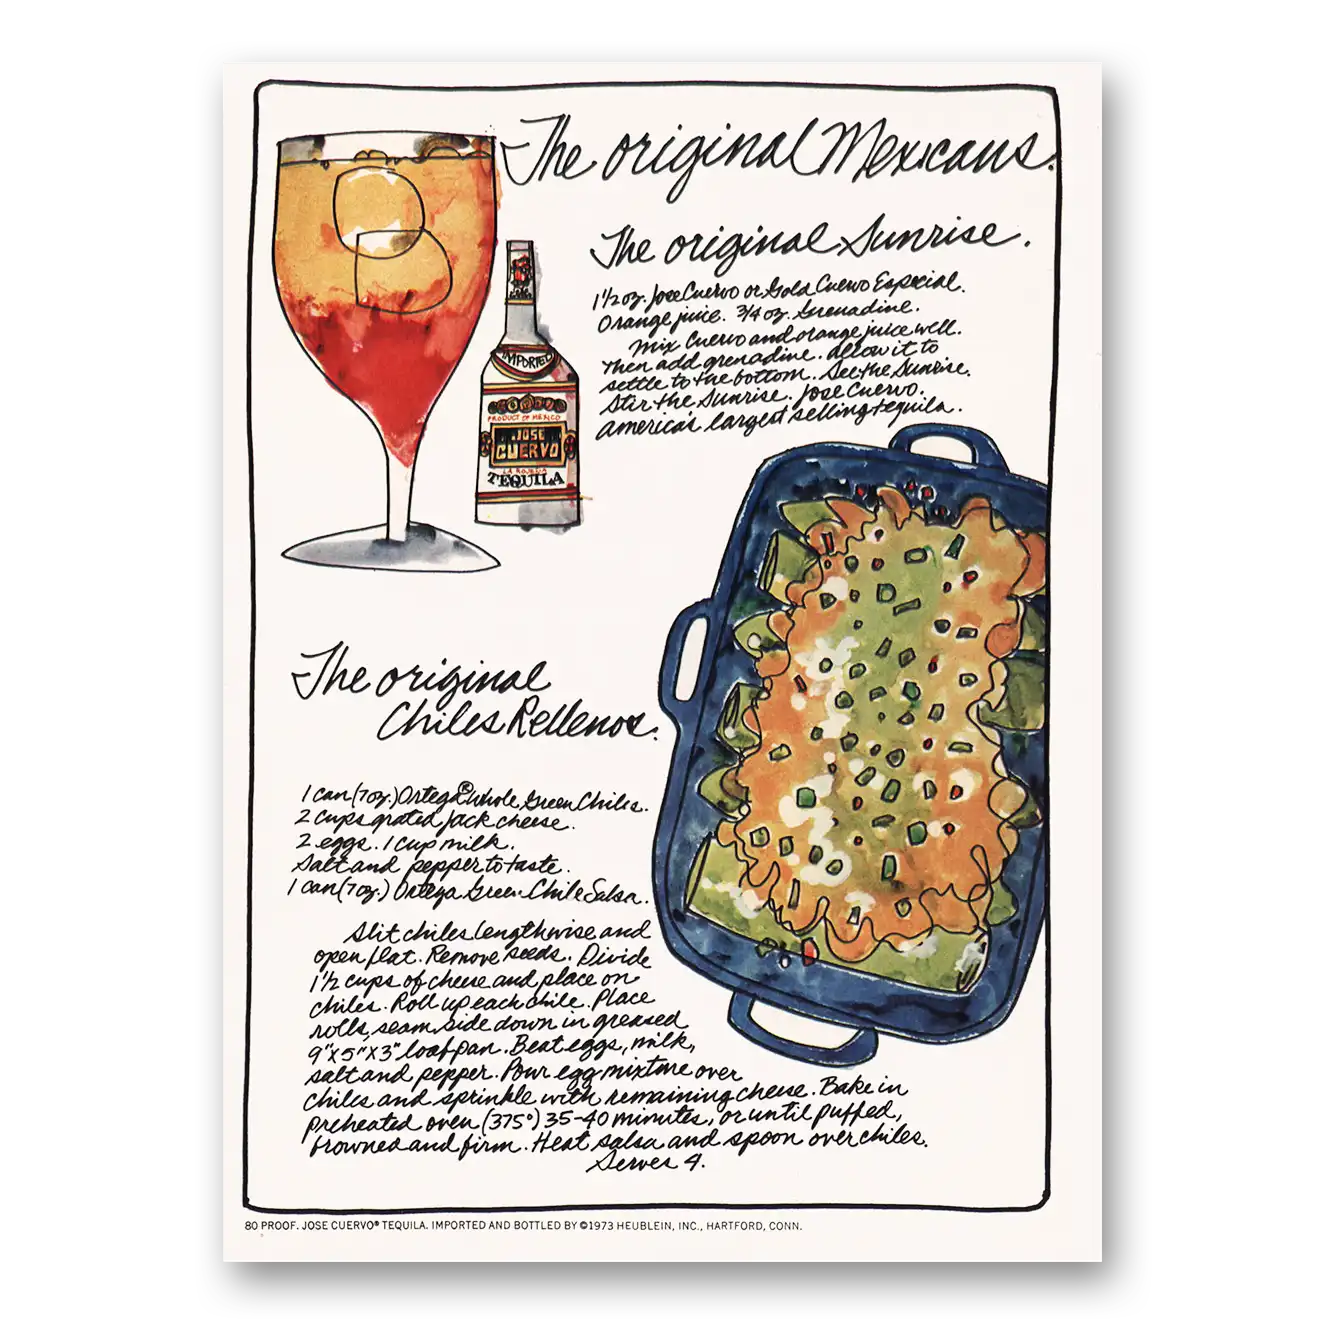 The original Mexicans.
The original Sunrise.
1½ oz. Jose Cuervo or Gold Cuervo Especial.
Orange juice. ¾ oz. Grenadine.
Mix Cuervo and orange juice well.
Then add grenadine. Allow it to
settle to the bottom. See the Sunrise.
Stir the Sunrise. Jose Cuervo.
America's largest selling tequila.
IMPORTED
PRODUCT OF MEXICO
JOSE
CUERVO
LA ROJEÑA
TEQUILA
The original
Chiles Rellenos.
1 can (7 oz.) Ortega® whole Green Chiles.
2 cups grated jack cheese.
2 eggs. 1 cup milk.
Salt and pepper to taste.
1 can (7 oz.) Ortega Green Chile Salsa.
Slit chiles lengthwise and
open flat. Remove seeds. Divide
1½ cups of cheese and place on
chiles. Roll up each chile. Place
rolls, seam side down in greased
9"x5"x3" loaf pan. Beat eggs, milk,
salt and pepper. Pour egg mixture over
chiles and sprinkle with remaining cheese. Bake in
preheated oven (375°) 35-40 minutes, or until puffed,
browned and firm. Heat salsa and spoon over chiles.
Serves 4.
80 PROOF. JOSE CUERVO® TEQUILA. IMPORTED AND BOTTLED BY ©1973 HEUBLEIN, INC., HARTFORD, CONN.